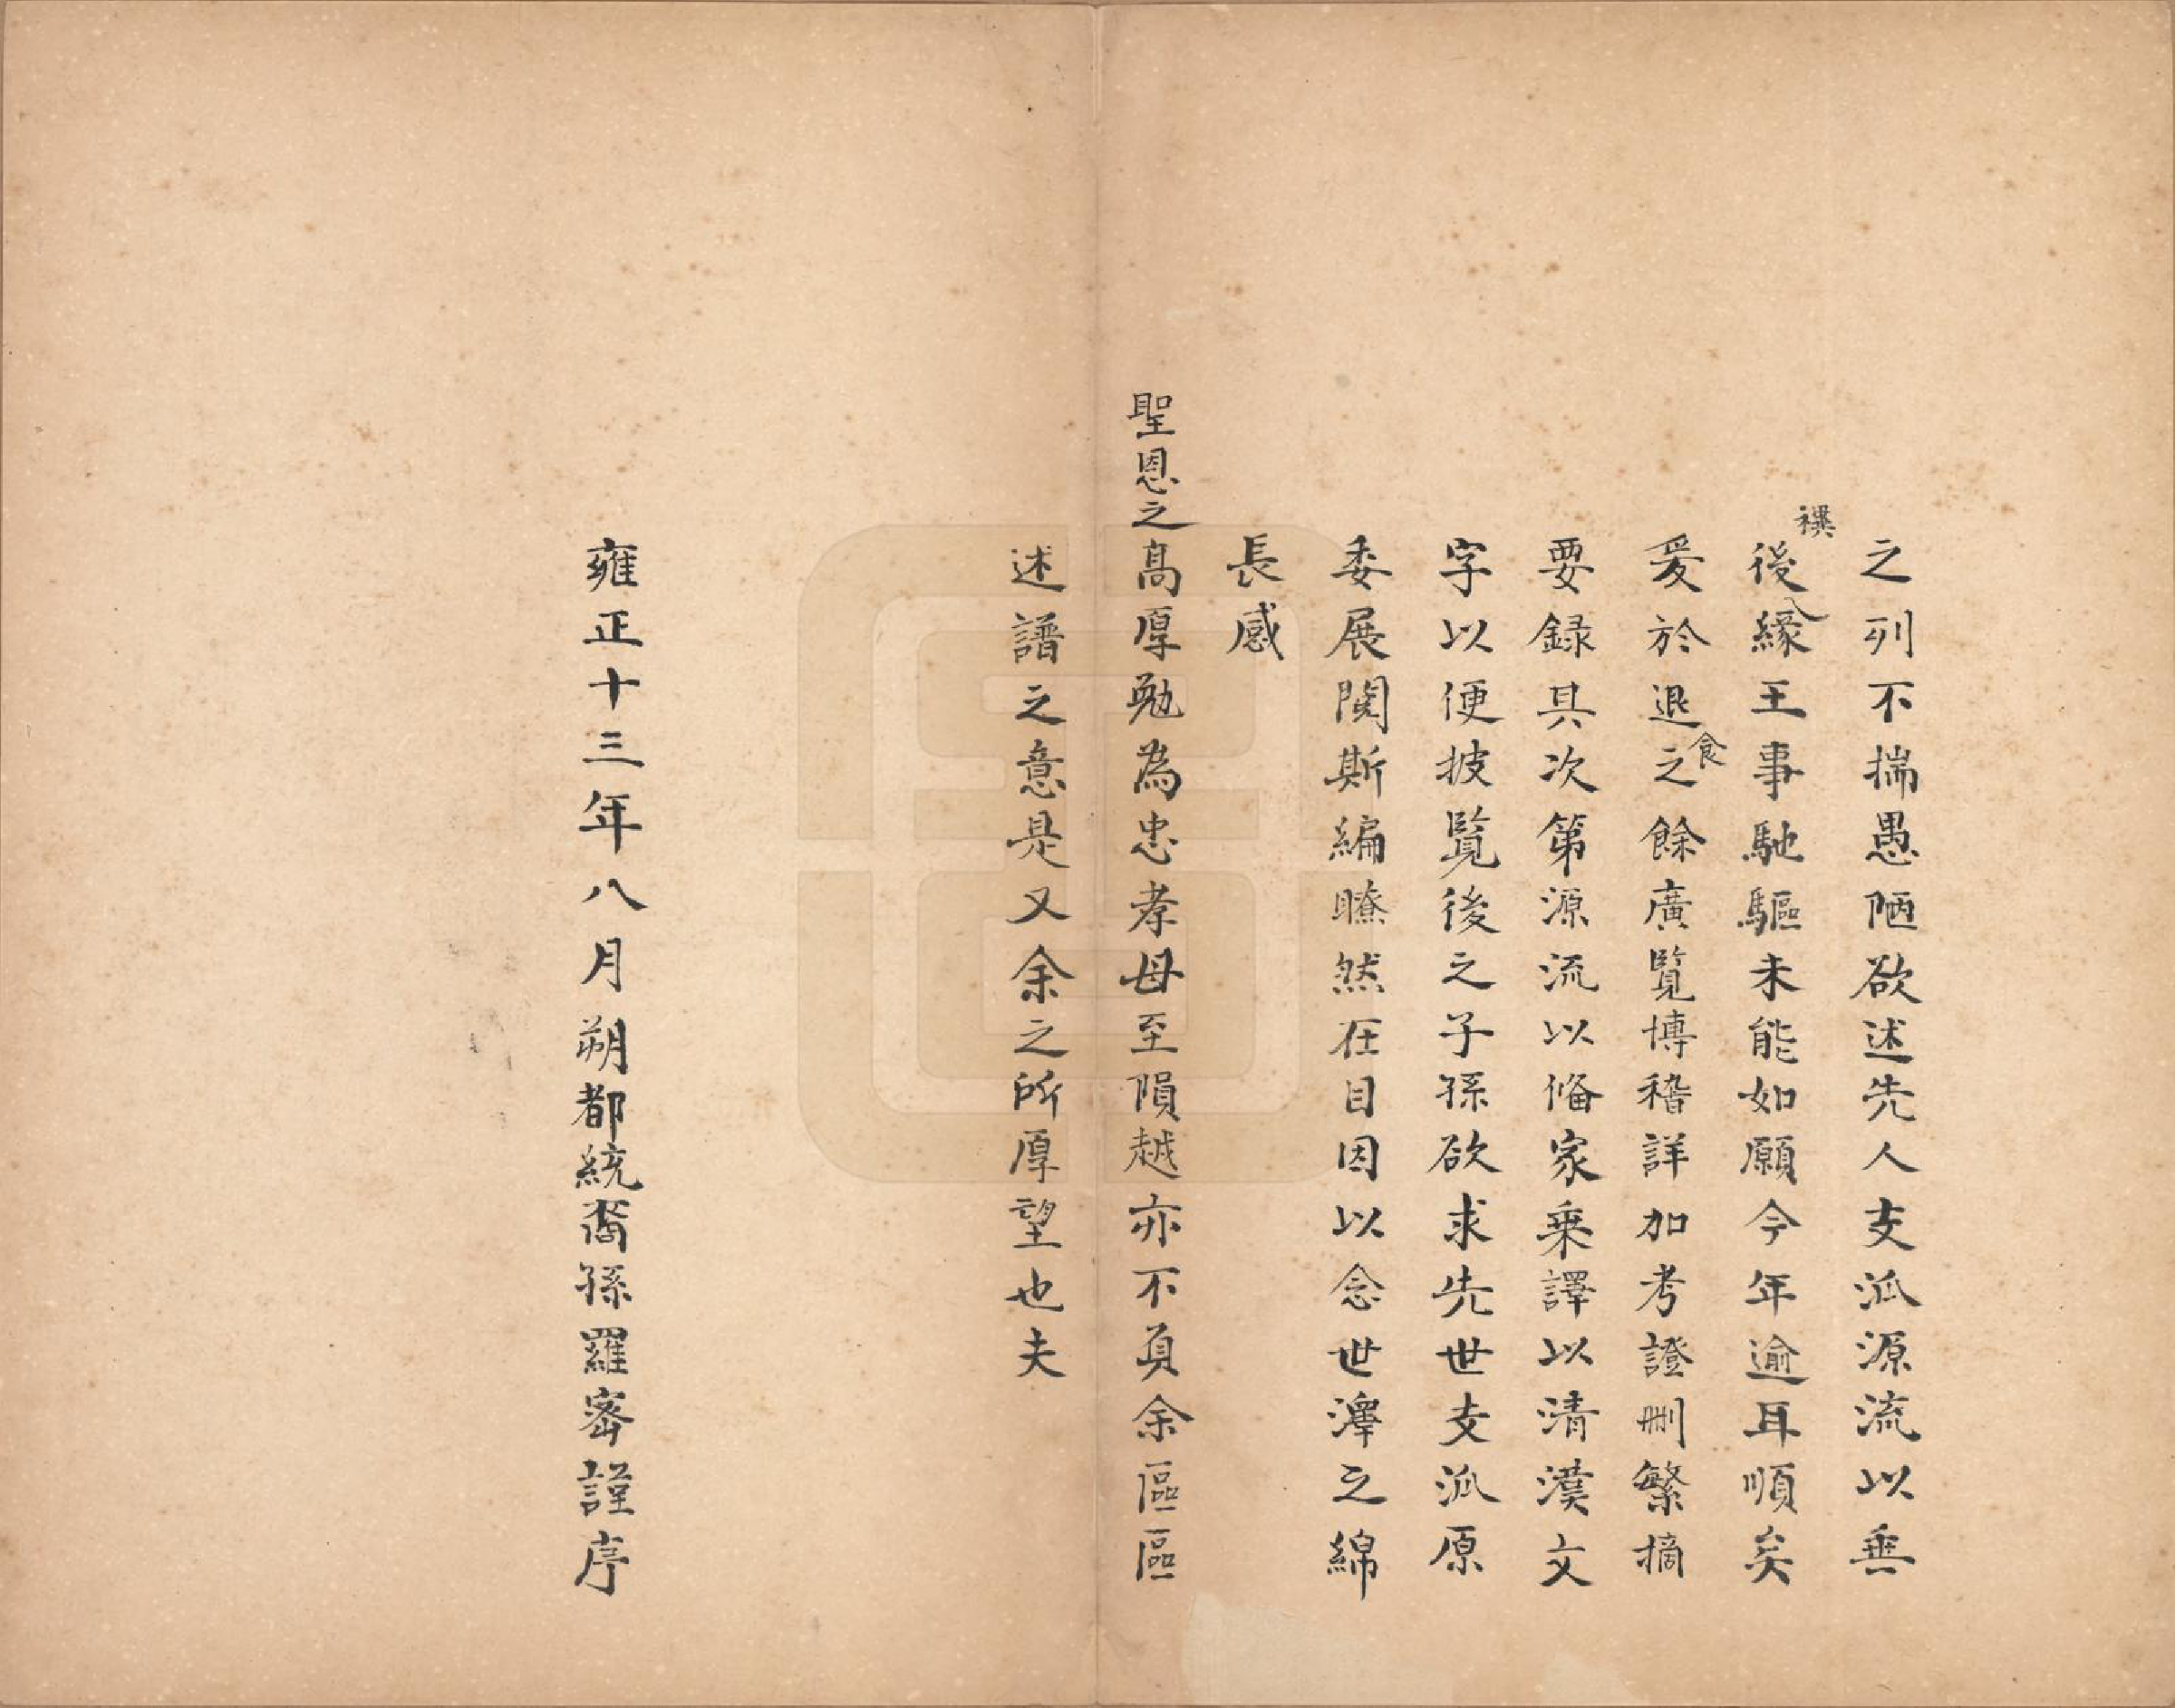 之列不揣愚陋欲述先人支派源流以垂
後禩緣王事馳驅未能如願今年逾耳順矣
爰於退食之餘廣覽博稽詳加考證刪繁摘
要録其次第源流以偹家乗譯以清漢文
字以便披覧後之子孫欲求先世支派原
委展閱斯編瞭然在目因以念世澤之綿
長感
聖恩之髙厚勉為忠孝毋至隕越亦不負余區區
述譜之意是又余之所厚望也夫
雍正十三年八月朔都統裔孫羅宻謹序